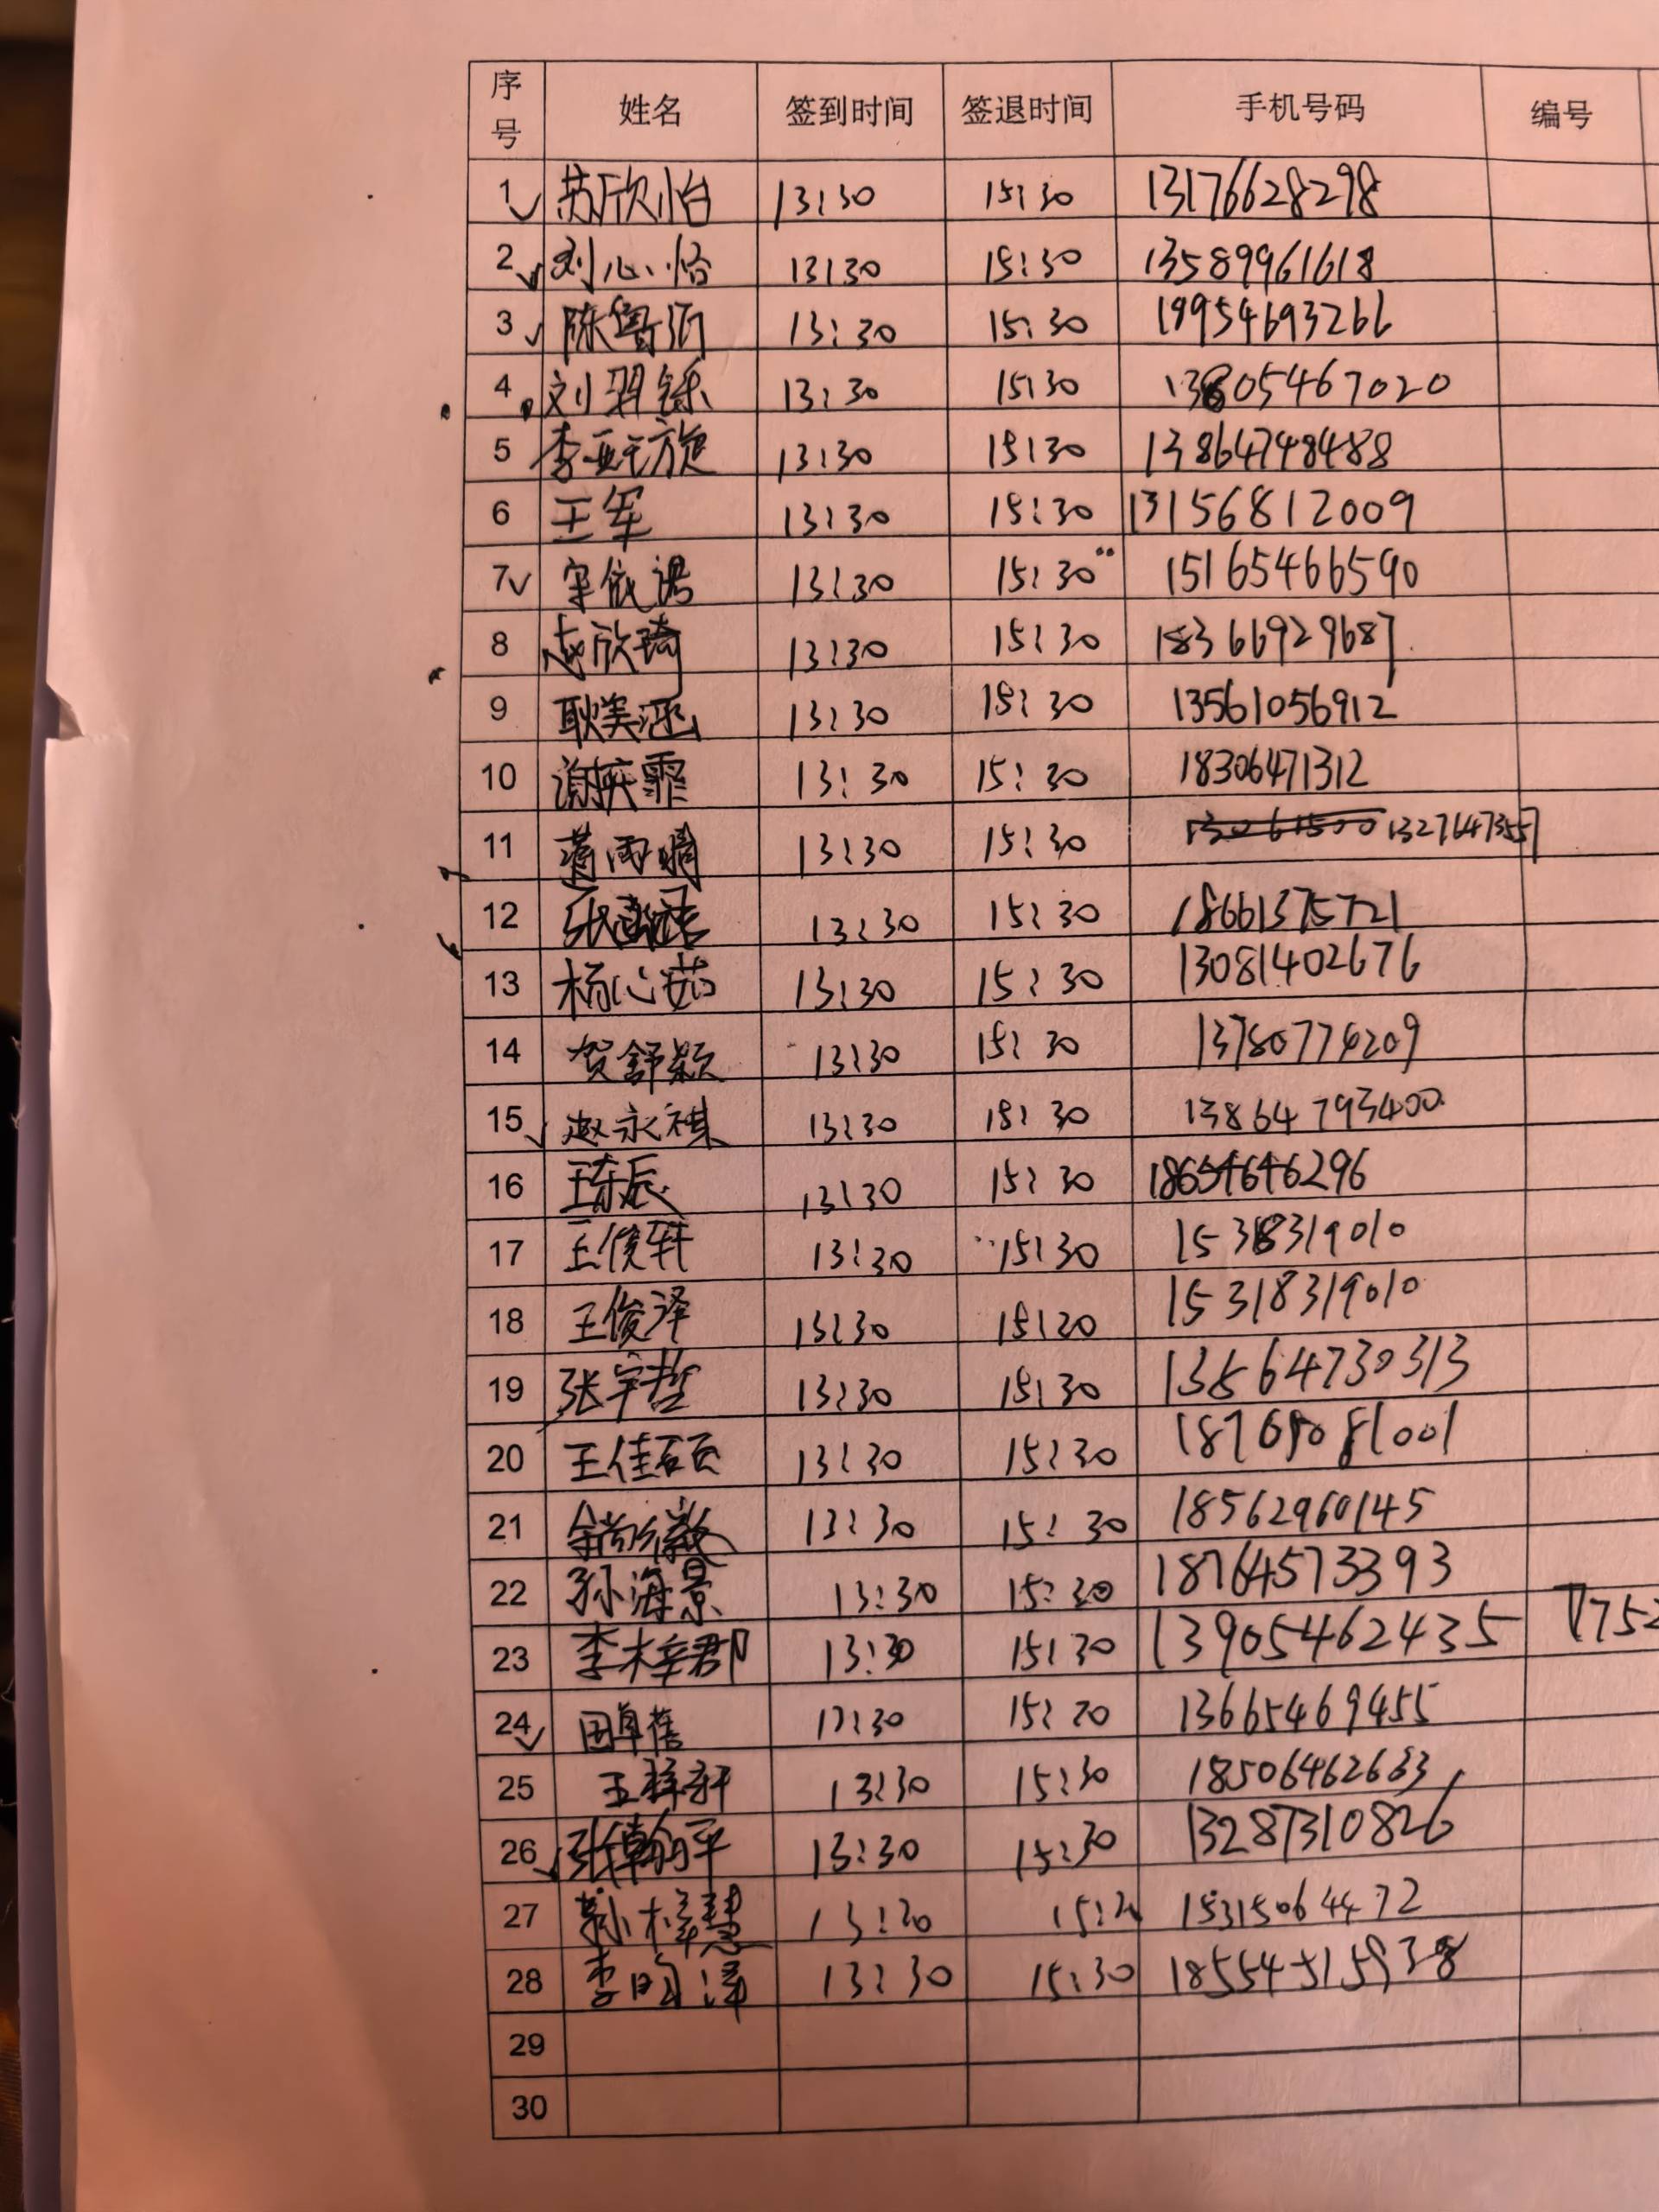 序号 姓名 签到时间 签退时间 手机号码 编号
1 苏欣怡 13:30 15:30 13176628298
2 刘心怡 13:30 15:30 13589961618
3 陈鲁沂 13:30 15:30 19954693266
4 刘羿铄 13:30 15:30 13805467020
5 李亚旋 13:30 15:30 13864748488
6 王军 13:30 15:30 13156812009
7 宋依诺 13:30 15:30 15165466590
8 赵欣琦 13:30 15:30 18366929687
9 耿美涵 13:30 15:30 13561056912
10 谢奕霏 13:30 15:30 18306471312
11 蒋雨晴 13:30 15:30 13276473557
12 13:30 15:30 18661375721
13 杨心茹 13:30 15:30 13081402676
14 贺舒颖 13:30 15:30 13780774209
15 赵永祺 13:30 15:30 13864793400
16 王东辰 13:30 15:30 18654646296
17 王俊轩 13:30 15:30 15318319010
18 王俊泽 13:30 15:30 15318319010
19 张宇哲 13:30 15:30 13564730313
20 王佳硕 13:30 15:30 18769081001
21 13:30 15:30 18562960145
22 孙海景 13:30 15:30 18764573393
23 李梓郡 13:30 15:30 13905462435 1752
24 田卓蓓 13:30 15:30 13665469455
25 王梓轩 13:30 15:30 18506462633
26 张翰平 13:30 15:30 13287310826
27 孙梓慧 13:20 15:20 15315064472
28 李昀泽 13:30 15:30 18554515938
29
30